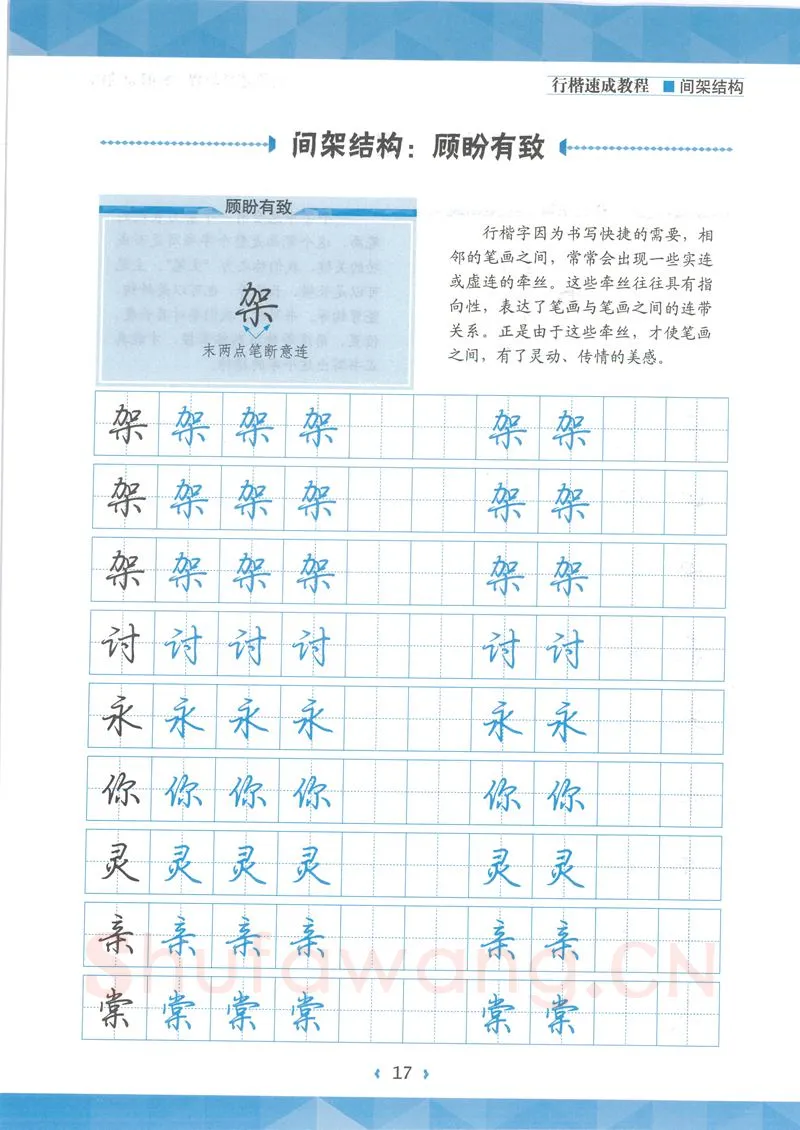 行楷速成教程 ■ 间架结构
间架结构：顾盼有致
顾盼有致
架
末两点笔断意连
行楷字因为书写快捷的需要，相
邻的笔画之间，常常会出现一些实连
或虚连的牵丝。这些牵丝往往具有指
向性，表达了笔画与笔画之间的连带
关系。正是由于这些牵丝，才使笔画
之间，有了灵动、传情的美感。
架 架 架 架 架 架
架 架 架 架 架 架
架 架 架 架 架 架
讨 讨 讨 讨 讨 讨
永 永 永 永 永 永
你 你 你 你 你 你
灵 灵 灵 灵 灵 灵
亲 亲 亲 亲 亲 亲
棠 棠 棠 棠 棠 棠
Shufawang.CN
17